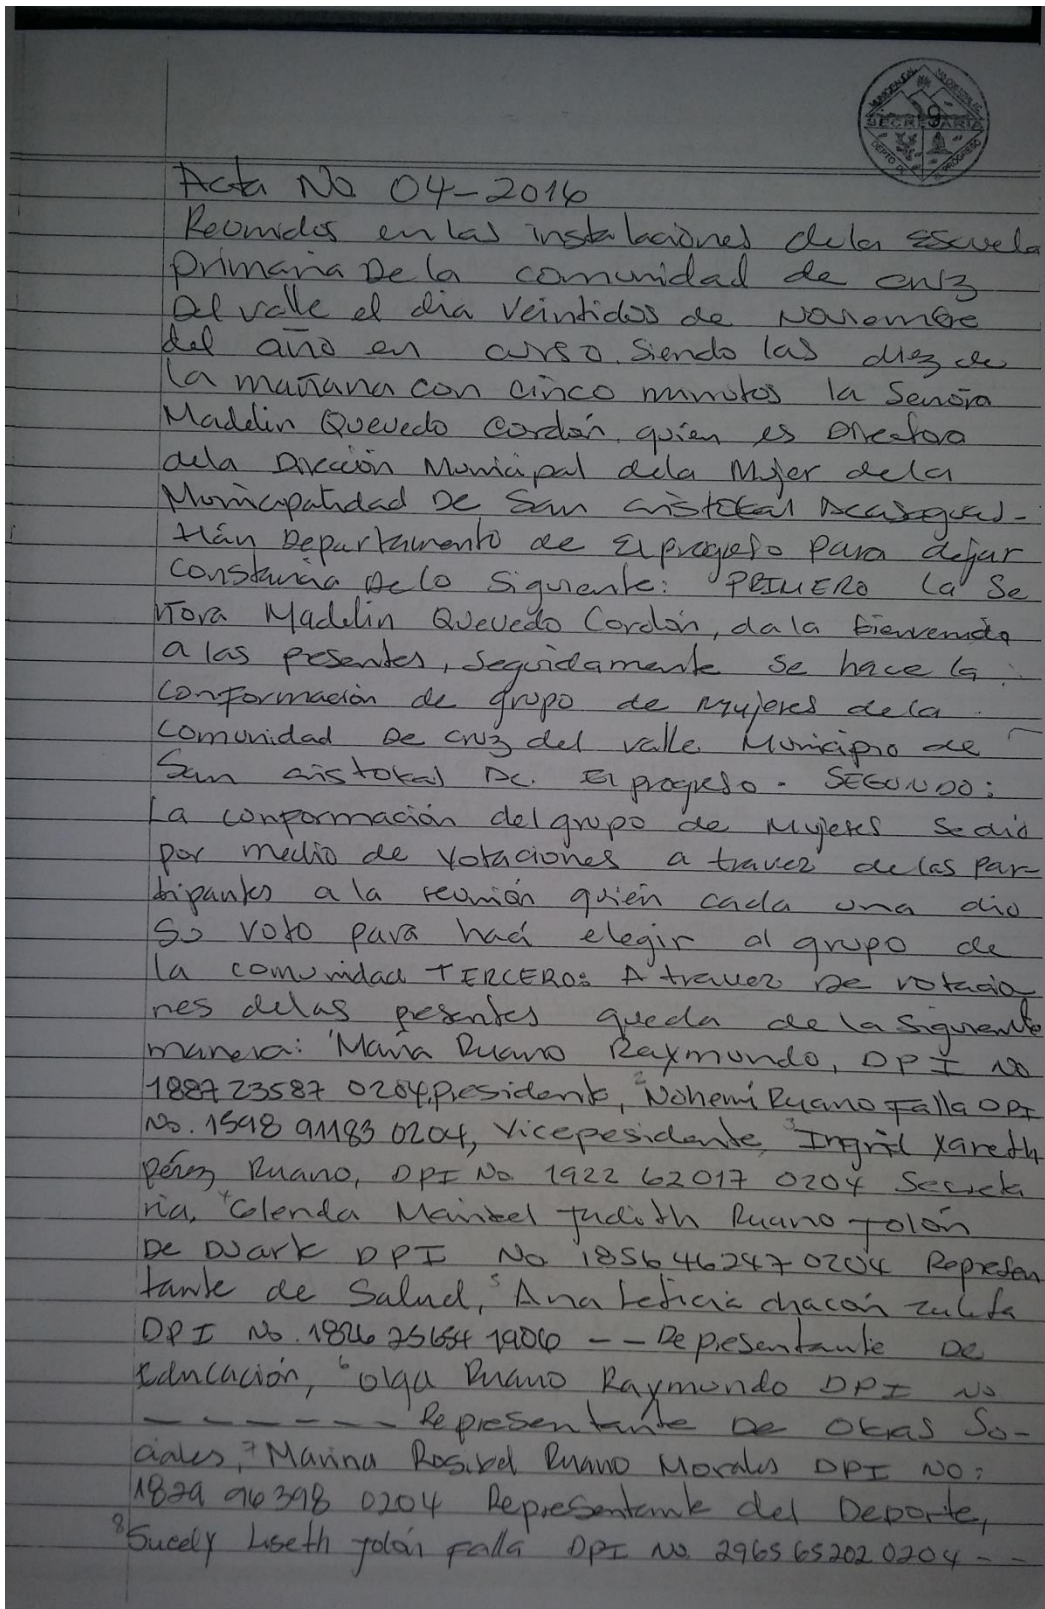 SECRETARIA
9
DEPTO DE EL PROGRESO
Acta No 04-2016
Reunidos en las instalaciones dela Escuela
primaria De la comunidad de cruz
Del valle el dia veintidos de Noviembre
del año en curso. Siendo las diez de
la mañana con cinco minutos la Señora
Maddelin Quevedo Cordón, quien es Directora
dela Dirección Municipal dela Mujer dela
Municipalidad De San cristobal Acasaguas-
tlán Departamento de El progreso para dejar
constancia De lo Siguiente: PRIMERO La Se
ñora Madelin Quevedo Cordón, da la bienvenida
a las presentes, Seguidamente se hace la
conformación de grupo de Mujeres dela
comunidad De cruz del valle Municipio de
San cristobal Ac. El progreso - SEGUNDO:
La conformación del grupo de Mujeres se dió
por medio de votaciones a travez de las par-
tipantes a la reunión quién cada una dio
Su voto para hací elegir al grupo de
la comunidad TERCERO: A travez De votacio
nes delas presentes queda de la Siguiente
manera: ¹Maria Ruano Raymundo, DPI No
1887 23587 0204, presidente, ²Nohemí Ruano Falla DPI
No. 1598 91183 0204, Vicepesidente, ³Ingrid Xareth
pérez Ruano, DPI No 1922 62017 0204 Secreta
ria, ⁴Glenda Maribel Judith Ruano Jolón
De Duark DPI No 1856 46247 0204 Represen
tante de Salud, ⁵Ana Leticia chacón zuleta
DPI No. 1826 25654 1906 -- Representante De
Educación, ⁶olga Ruano Raymundo DPI No
------- Representante De Obras So-
ciales, ⁷Marina Rosibel Ruano Morales DPI No:
1829 96398 0204 Representante del Deporte,
⁸Sucely Liseth Jolón Falla DPI No. 2965 65202 0204 --